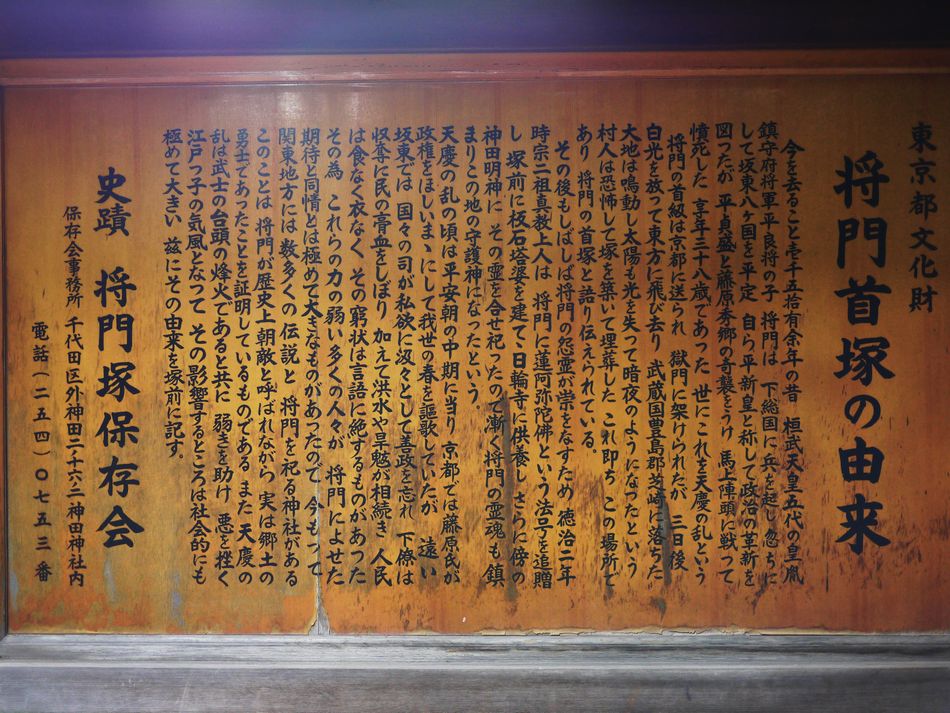 東京都文化財
将門首塚の由来
今を去ること壱千五拾有余年の昔 桓武天皇五代の皇胤
鎮守府将軍平良将の子 将門は 下総国に兵を起し 忽ちに
して坂東八ヶ国を平定 自ら平新皇と称して政治の革新を
図ったが 平貞盛と藤原秀郷の奇襲をうけ 馬上陣頭に戦って
憤死した 享年三十八歳であった 世にこれを天慶の乱という
将門の首級は京都に送られ 獄門に架けられたが 三日後
白光を放って東方に飛び去り 武蔵国豊島郡芝崎に落ちた
大地は鳴動し太陽も光を失って暗夜のようになったという
村人は恐怖して塚を築いて埋葬した これ即ち この場所で
あり 将門の首塚と語り伝えられている。
その後もしばしば将門の怨霊が祟をなすため 徳治二年
時宗二祖真教上人は 将門に蓮阿弥陀佛という法号を追贈
し 塚前に板石塔婆を建て日輪寺に供養し さらに傍の
神田明神に その霊を合せ祀ったので漸く将門の霊魂も鎮
まりこの地の守護神になったという
天慶の乱の頃は平安朝の中期に当り 京都では藤原氏が
政権をほしいまゝにして我世の春を謳歌していたが 遠い
坂東では 国々の司が私欲に汲々として善政を忘れ 下僚は
収奪に民の膏血をしぼり 加えて洪水や旱魃が相続き 人民
は食なく衣なく その窮状は言語に絶するものがあった
その為 これらの力の弱い多くの人々が 将門によせた
期待と同情とは極めて大きなものがあったので 今もって
関東地方には数多くの伝説と 将門を祀る神社がある
このことは 将門が歴史上朝敵と呼ばれながら 実は郷土の
勇士であったことを証明しているものである また 天慶の
乱は武士の台頭の烽火であると共に 弱きを助け 悪を挫く
江戸っ子の気風となって その影響するところは社会的にも
極めて大きい 茲にその由来を塚前に記す。
史蹟 将門塚保存会
保存会事務所 千代田区外神田二ノ十六ノ二神田神社内
電話(二五四)〇七五三番